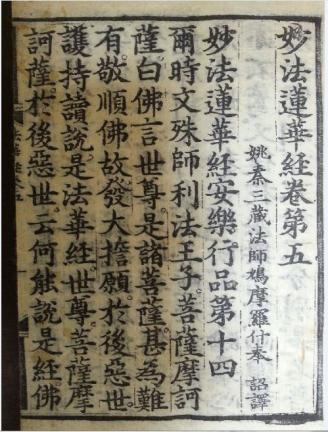 妙法蓮華經卷第五
姚秦三藏法師鳩摩羅什奉 詔譯
妙法蓮華經安樂行品第十四
爾時文殊師利法王子菩薩摩訶
薩白佛言世尊是諸菩薩甚為難
有敬順佛故發大擔願於後惡世
護持讀說是法華經世尊菩薩摩
訶薩於後惡世云何能說是經佛